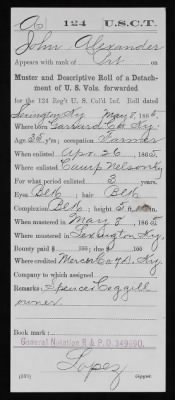 A | 124 | U.S.C.T.
John Alexander
Appears with rank of Pvt on
Muster and Descriptive Roll of a Detach-
ment of U. S. Vols. forwarded
for the 124 Reg't U. S. Col'd Inf. Roll dated
Lexington Ky May 8, 1865.
Where born Garrard Co. Ky.
Age y'rs; occupation Farmer
When enlisted Apr. 26, 1865.
Where enlisted Camp Nelson Ky
For what period enlisted 3 years.
Eyes Blk; hair Blk
Complexion Blk; height 5 ft. in.
When mustered in May 8, 1865
Where mustered in Lexington Ky.
Bounty paid $ 100; due $ 100
Where credited Mercer Co. Ky
Company to which assigned
Remarks: Spencer Coggill
owner
Book mark:
General Notation R & P.O. 349690.
Lopez
Copyist.